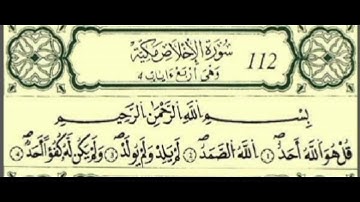 سُورَةُ الْإِخْلَاصِ مَكِّيَّةٌ
وَهِيَ أَرْبَعُ آيَاتٍ ٤
112
بِسْمِ اللَّهِ الرَّحْمَٰنِ الرَّحِيمِ
قُلْ هُوَ اللَّهُ أَحَدٌ ۝١ اللَّهُ الصَّمَدُ ۝٢ لَمْ يَلِدْ وَلَمْ يُولَدْ ۝٣ وَلَمْ يَكُن لَّهُ كُفُوًا أَحَدٌ ۝٤